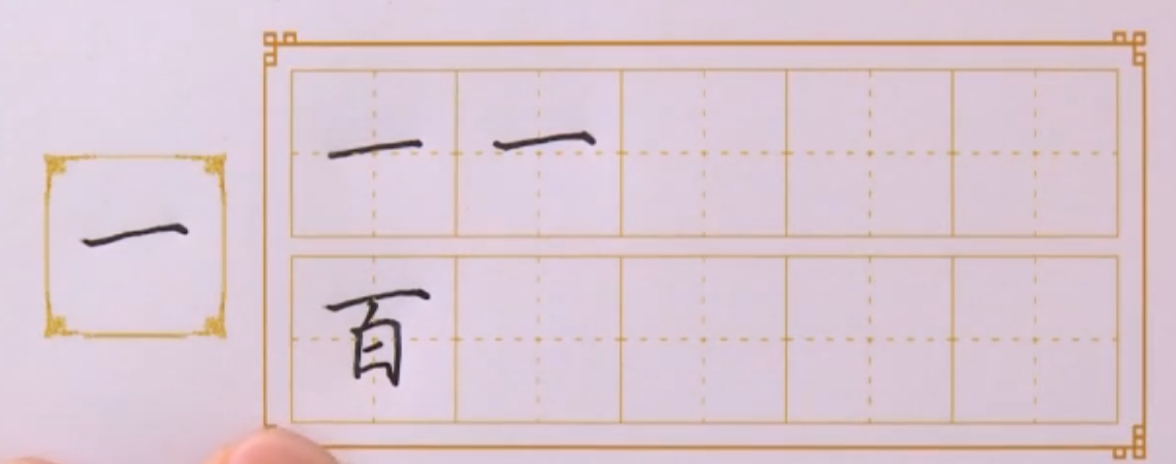 一
一 一
百